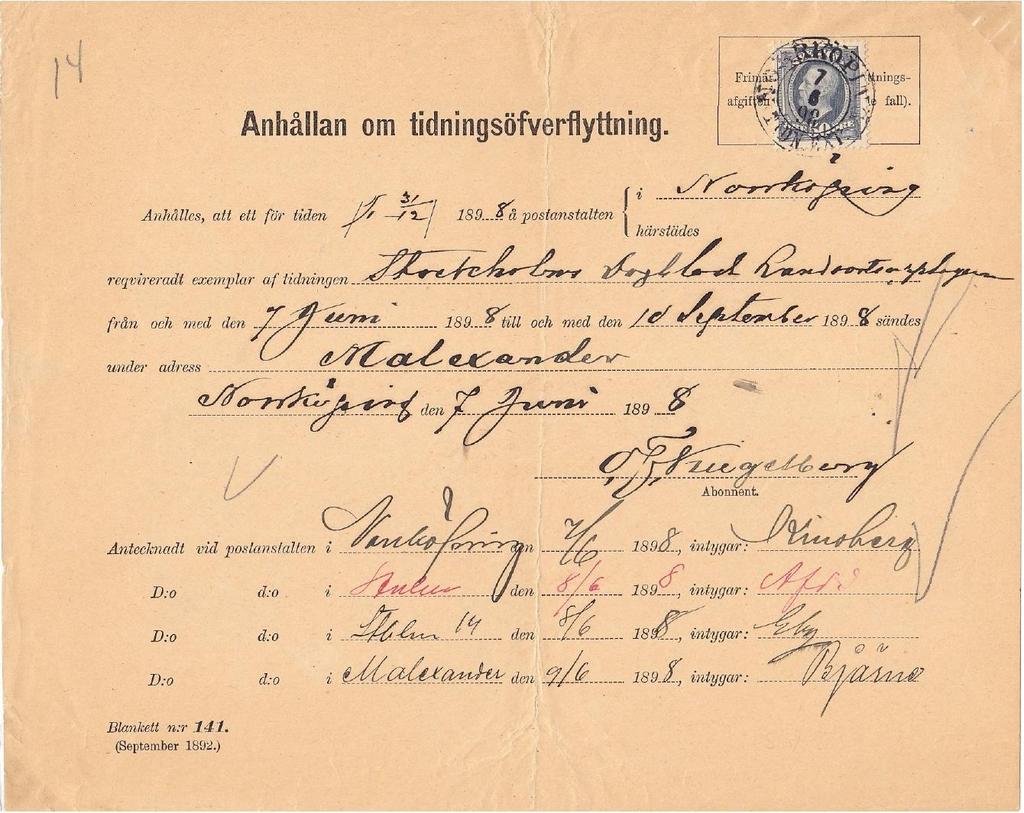 14
Frimär nings-
afgiften e fall).
7
6
98
Anhållan om tidningsöfverflyttning.
Anhålles, att ett för tiden 1/1 31/12 1898 å postanstalten i Norrköping
härstädes
reqvireradt exemplar af tidningen Stockholms Dagblad Landsortsupplagan
från och med den 7 Juni 1898 till och med den 10 September 1898 sändes
under adress Malexander
Norrköping den 7 Juni 1898
Abonnent.
Antecknadt vid postanstalten i Norrköping den 7/6 1898, intygar:
D:o d:o i den 8/6 1898, intygar:
D:o d:o i Sthlm 14 den 8/6 1898, intygar:
D:o d:o i Malexander den 9/6 1898, intygar: Bjärne
Blankett n:r 141.
(September 1892.)